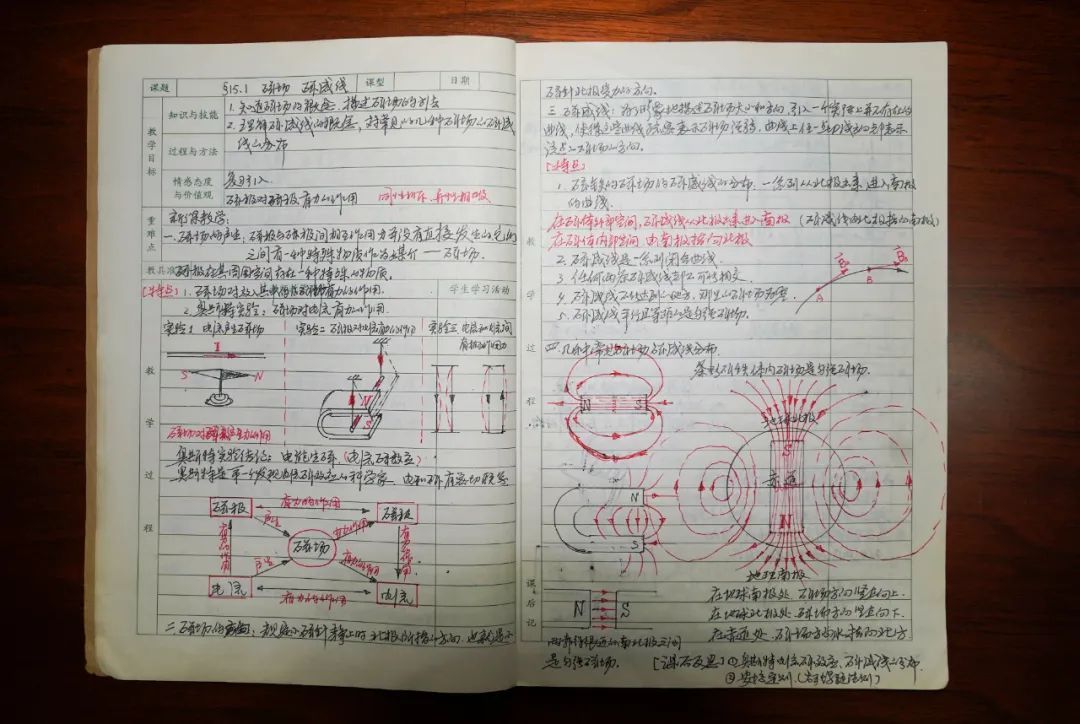 课题 §15.1 磁场 磁感线 课型 日期
教学目标
知识与技能
1. 知道磁场的概念,描述磁场的
2. 理解磁感线的概念,对常见的几种磁场的磁感
线的分布
过程与方法
情感态度与价值观
复习引入
磁极对磁极有力的作用 同性相斥、异性相吸
重难点
新课教学:
一. 磁场的产生:磁极与磁极间相互作用力并没有直接发生的它们
之间有一种特殊物质作为媒介 —— 磁场.
教具准
磁极在其周围空间存在一种特殊的物质。
[特点] 1. 磁场对放入其中的 有力的作用. 学生学习活动
2. 奥斯特实验:磁场对电流有力的作用.
实验1 电流产生磁场 实验二 磁极对电流有力的作用 实验三 电流和电流间
有相互作用力
I
S N
N
S
教学过程
奥斯特实验结论: 电能生磁. (电流磁效应)
奥斯特是第一个发现电流磁效应的科学家. 电和磁有密切联系
磁极 有力的作用 磁极
产生 有力的作用
磁场
有力的作用 有力的作用
产生 有力的作用
电流 有力的作用 电流
二 磁场的方向:规定小磁针静止时北极所指的方向. 也就是小
磁针北极受力的方向。
三 磁感线: 为了形象地描述磁场大小和方向,引入一个实际上并不存在的
曲线,使得这些曲线疏密表示磁场强弱,曲线上任一点切线方向即表示
该点磁场的方向。
[特点]
1. 磁铁的磁场的磁感线的分布. 一条到从北极出来,进入南极
的曲线.
在磁体外部空间,磁感线从北极出来进入南极 (磁感线由北极指向南极)
在磁体内部空间 由南极指向北极
2. 磁感线是一条到闭合曲线.
3. 任何两条磁感线都不可能相交.
4. 磁感线不能达到的地方,那里的磁场为零.
5. 磁感线平行且等距的是匀强磁场.
A B B
教学过程
四. 几个常见的磁场磁感线分布.
条形磁铁体内磁场是匀强磁场.
N S
地球北极
S
赤道
N
地球南极
N
S
N S
课后记
两靠得很近的南北极之间
是匀强磁场.
在地球南极处,磁场方向竖直向上.
在地球北极处,磁场方向竖直向下.
在赤道处,磁场方向水平指向北方
[课后反思] ① 奥斯特电流磁效应,磁感线的分布.
② 安培定则.(右手螺旋法则)